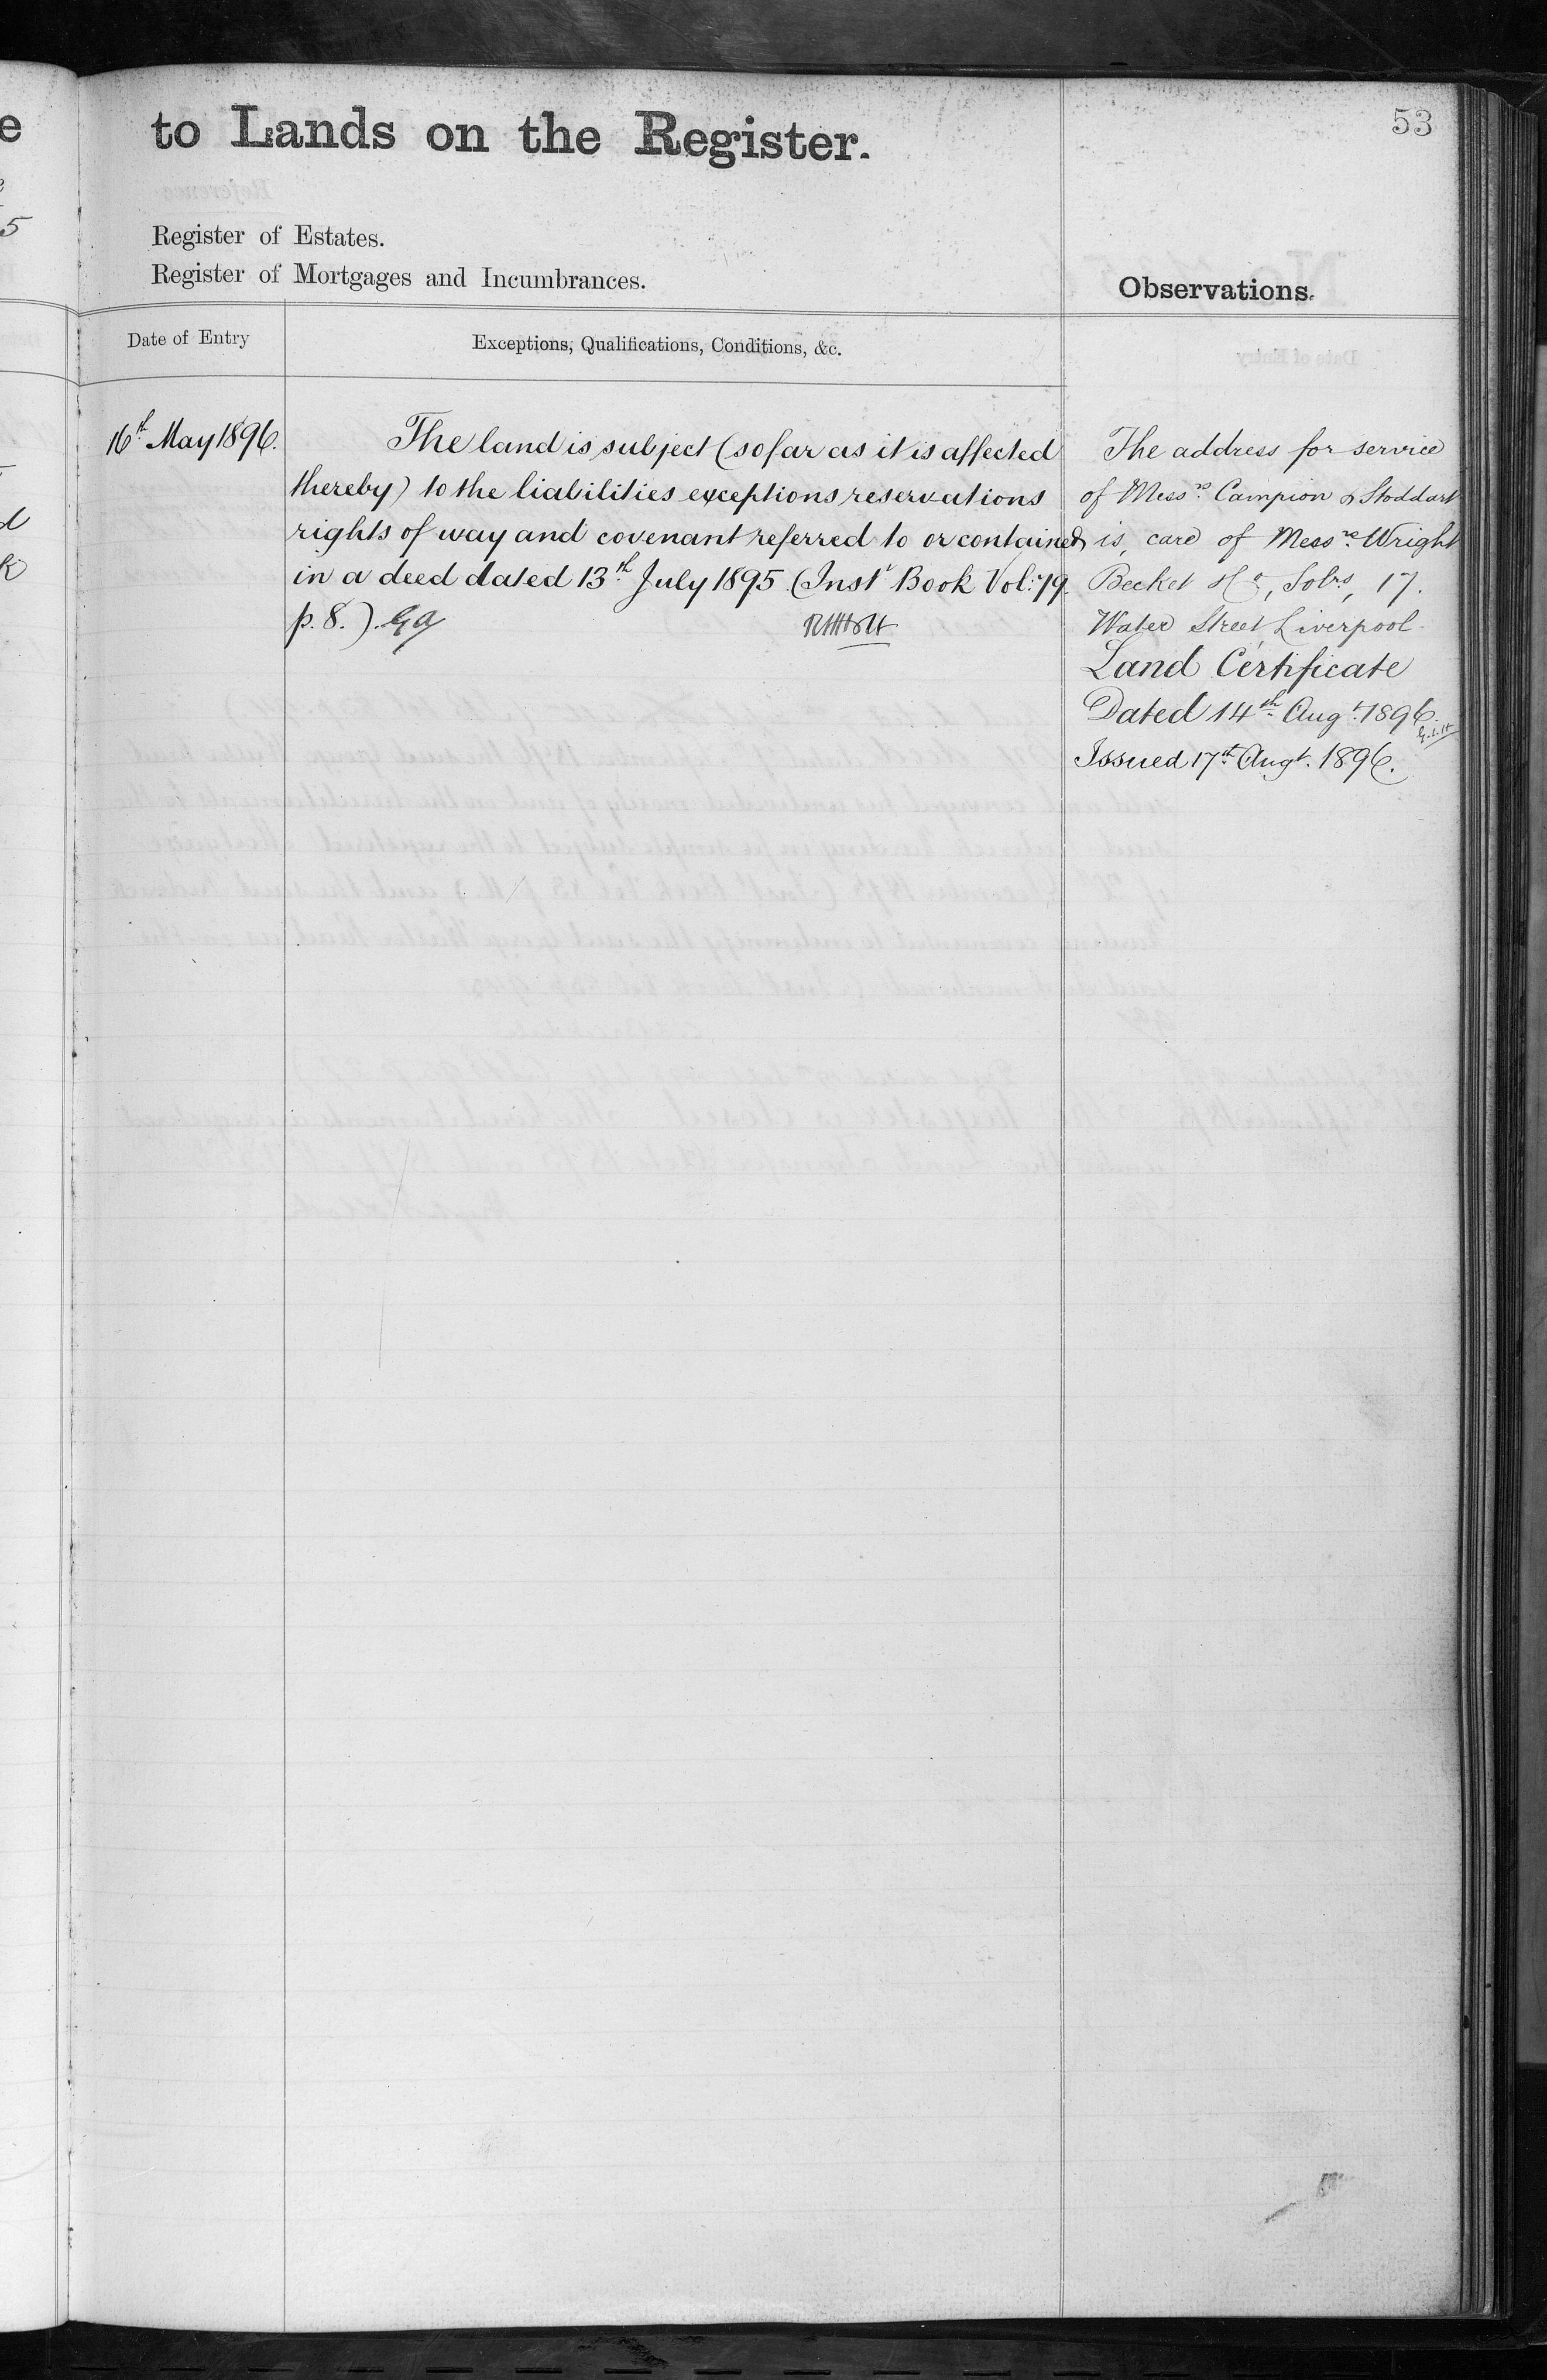 53
to Lands on the Register.
Register of Estates.
Register of Mortgages and Incumbrances.
Observations.
Date of Entry
Exceptions, Qualifications, Conditions, &c.
16th May 1896.
The land is subject (so far as it is affected
thereby) to the liabilities exceptions reservations
rights of way and covenant referred to or contained
in a deed dated 13th July 1895 (Inst Book Vol: 79.
p. 8.).
The address for service
of Messrs Campion & Stoddart
is, care of Messrs Wright
Becket & Co, Solrs, 17.
Water Street, Liverpool.
Land Certificate
Dated 14th Augt. 1896.
Issued 17th Augt. 1896.